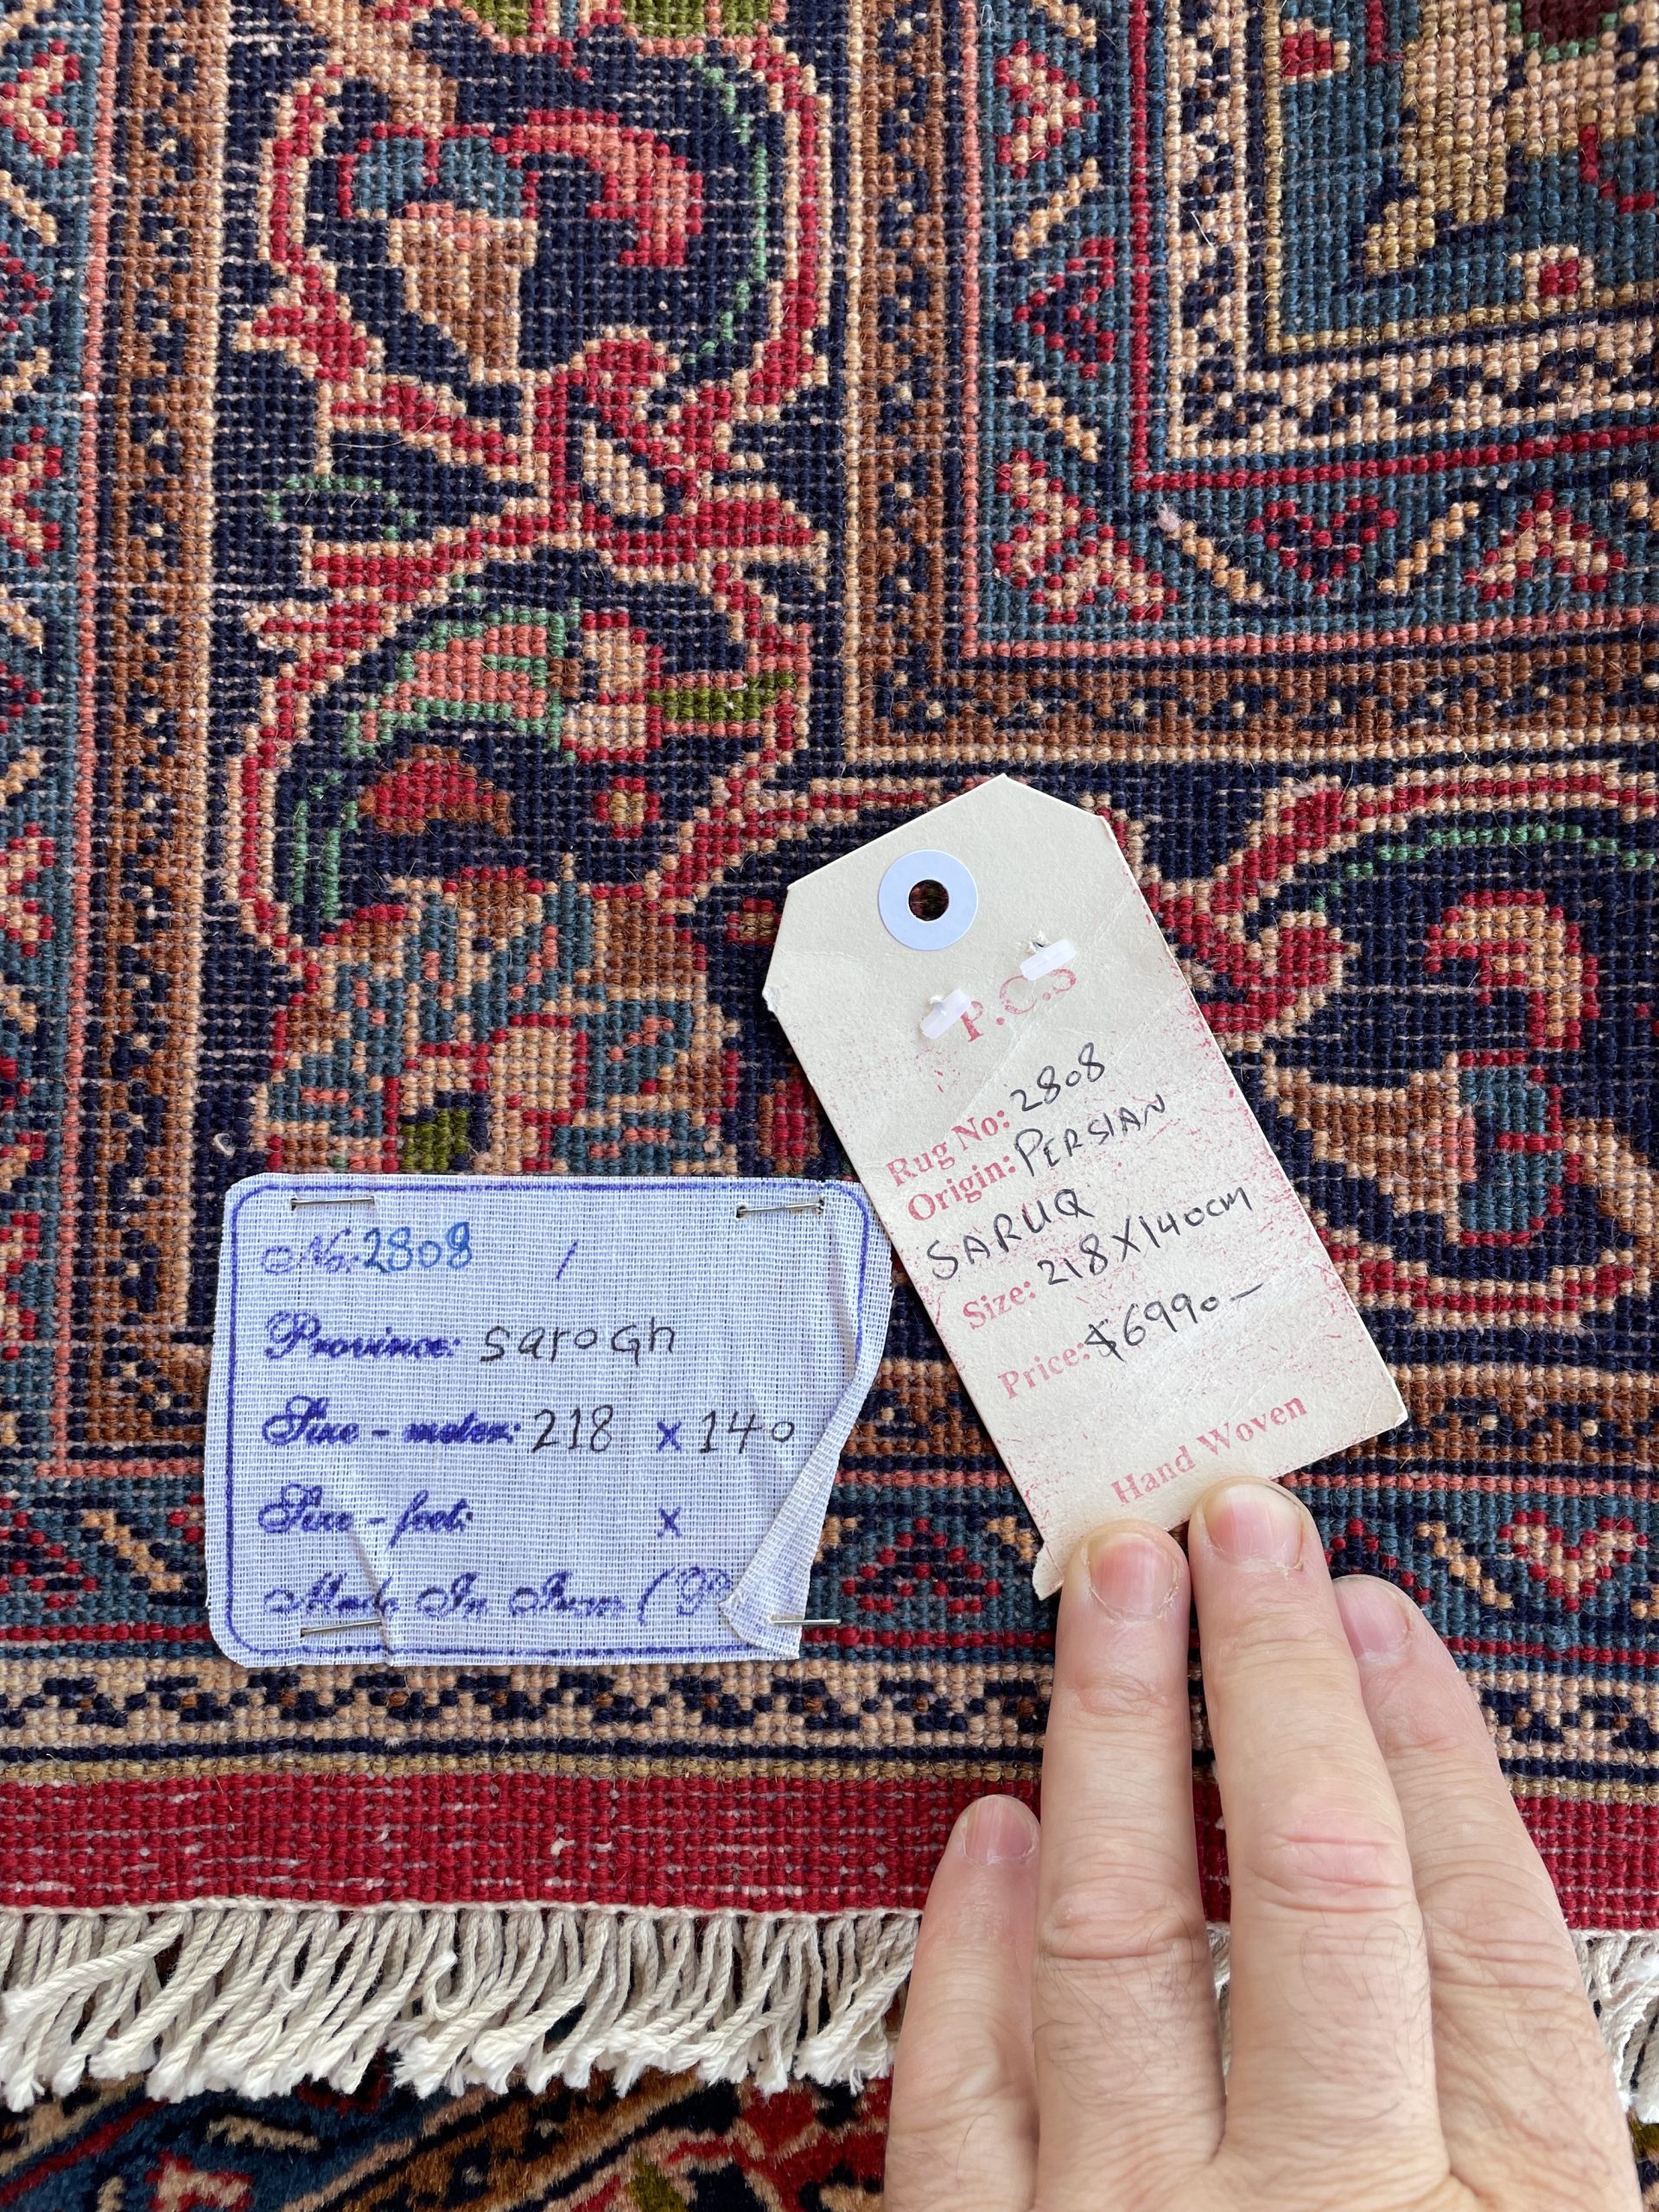 No: 2808 /
Province: sarogh
Size - meter: 218 x 140
Size - feet: x
Made In Iran (
P.C.S
Rug No: 2808
Origin: PERSIAN
SARUQ
Size: 218 X 140 cm
Price: $6990-
Hand Woven